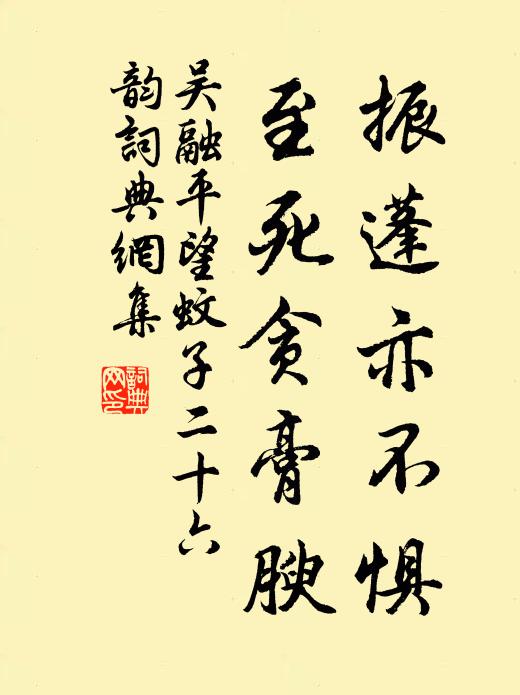 振蓬亦不惧
至死贪膏腴
吴融平望蚊子二十六
韵詞典網集
詞典网印